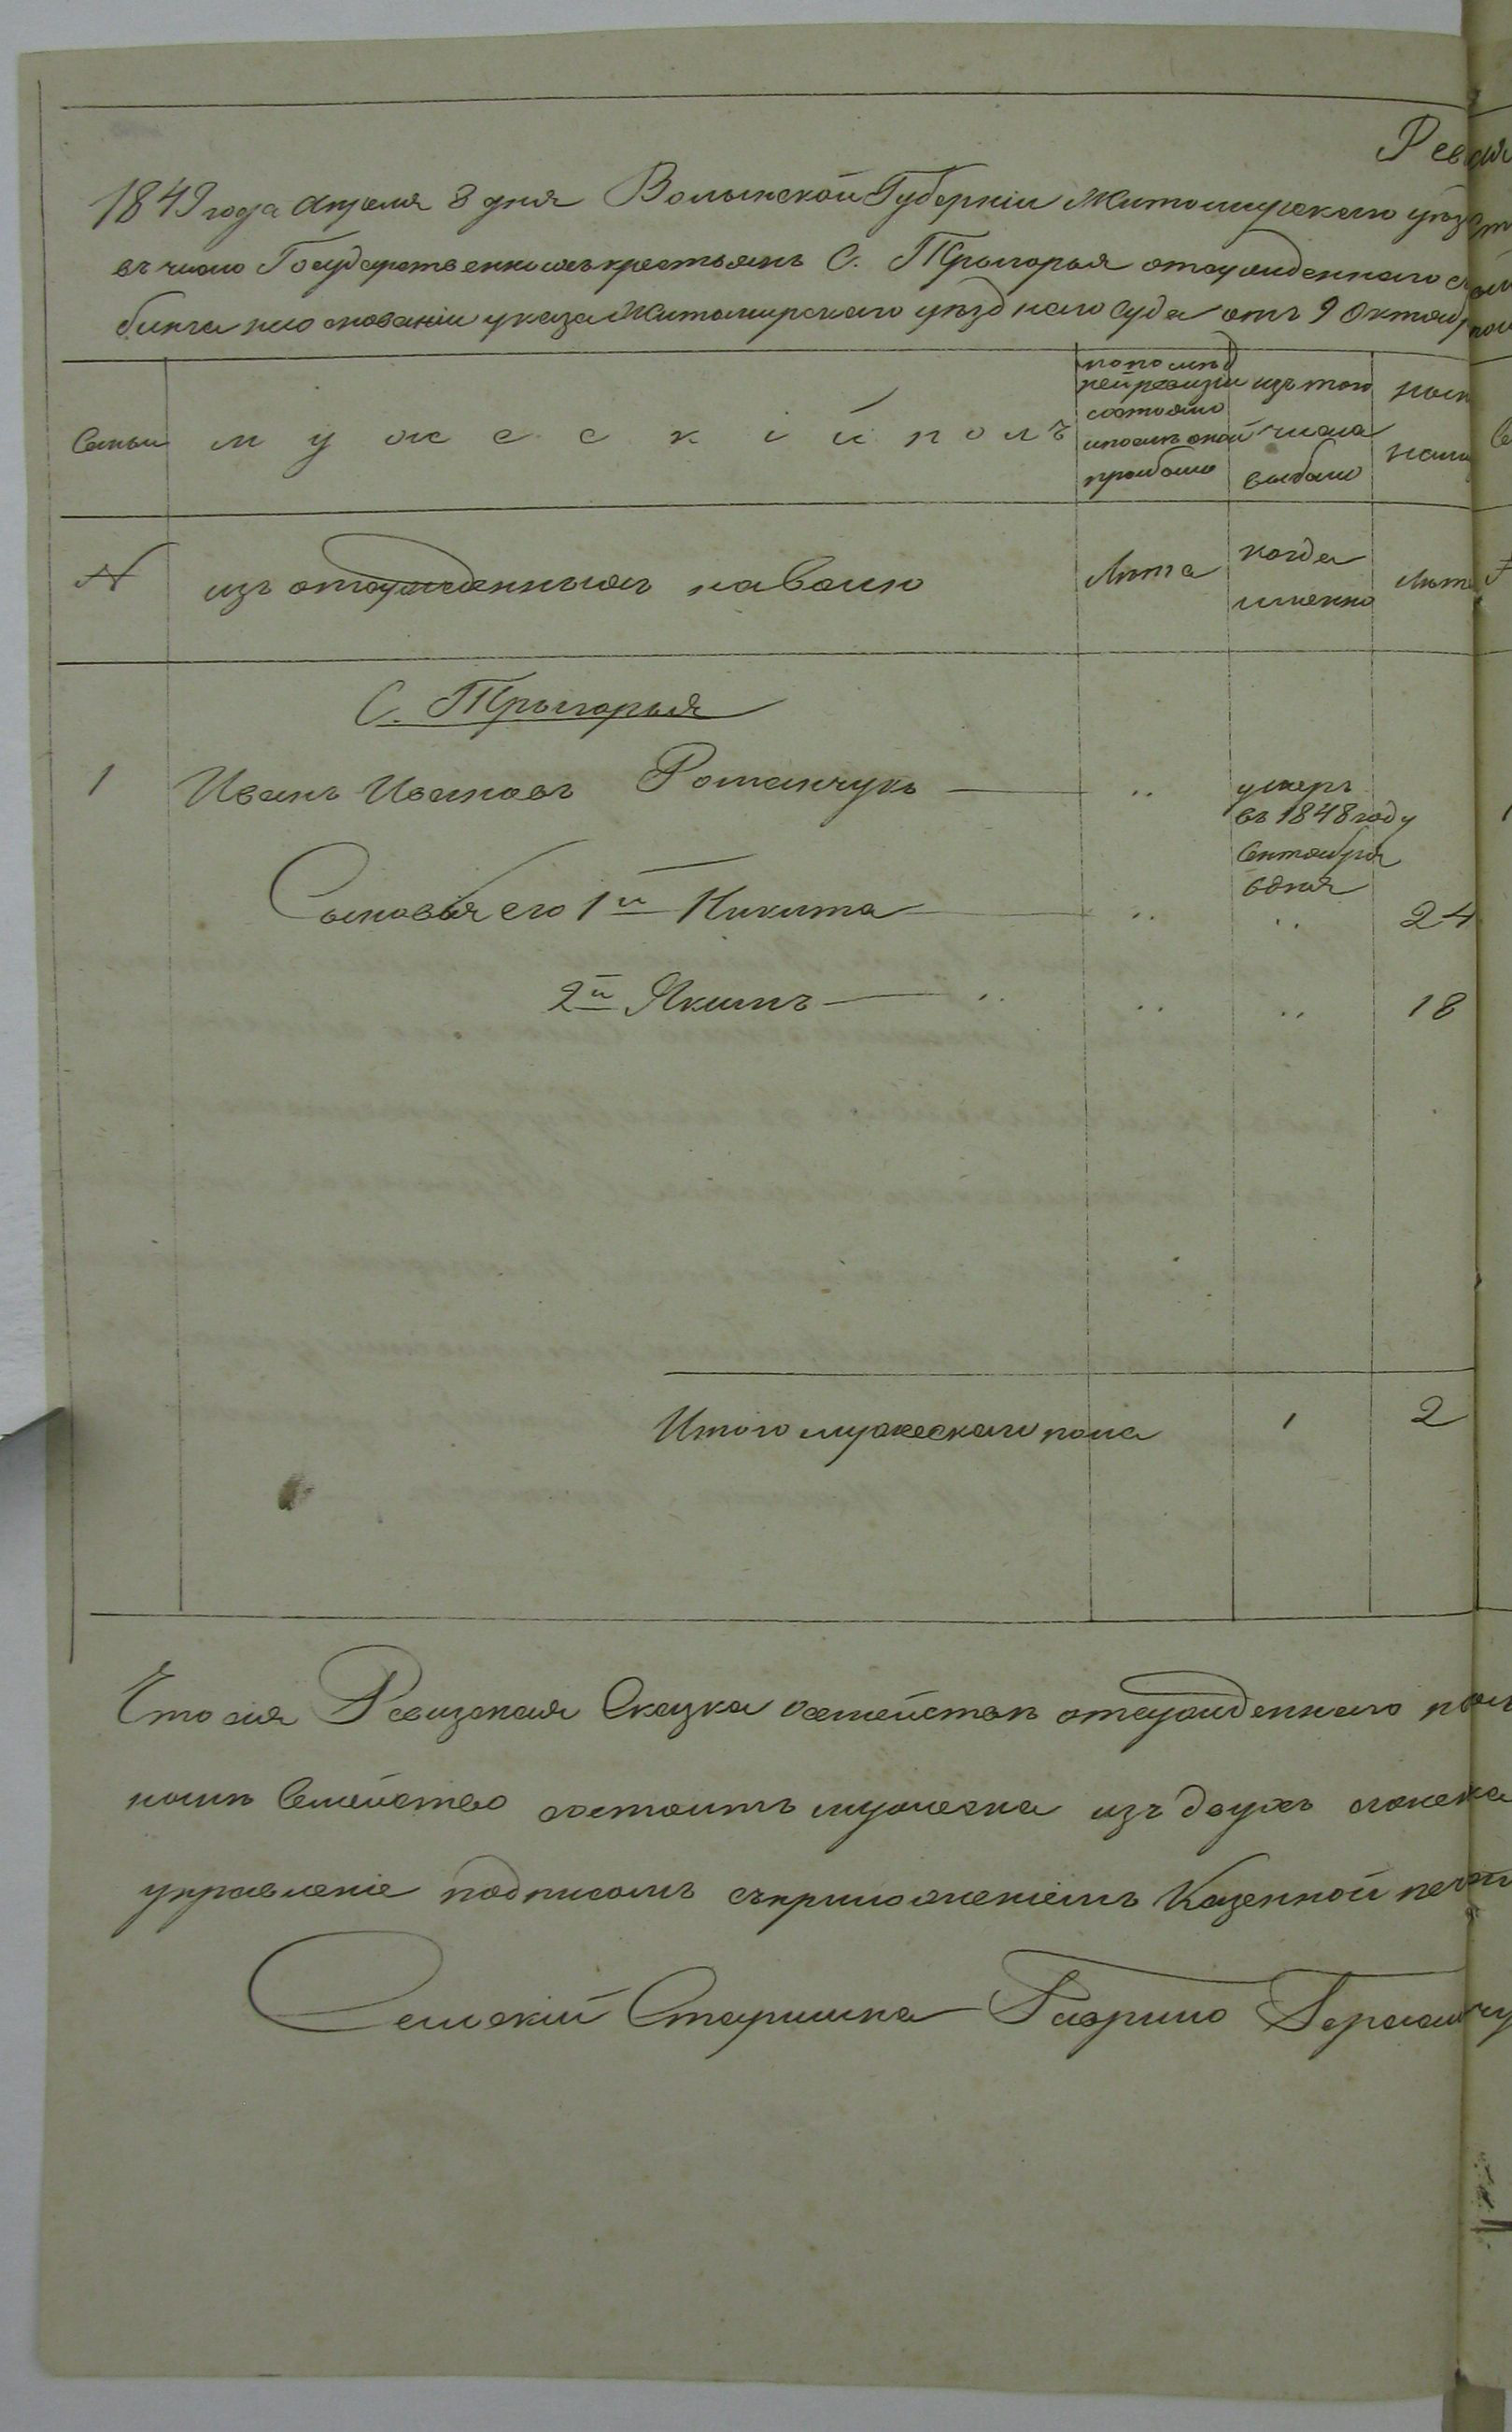 Реви
1849 года Апреля 8 дня Волынской Губерніи Житомирского уѣз
въ число Государственныхъ крестьянъ С. Трыгорья отсужденнаго
на основаніи указа Житомирскаго уѣзднаго Суда отъ 9 Октяб
Семьи мужескій полъ
по послѣд
ней ревизіи
состояло
и послѣ оной
прибыло
изъ того
числа
выбыло
нын
нали
№ изъ отсужденныхъ на волю Лѣта когда
именно Лѣта
С. Трыгорья
1 Иванъ Ивановъ Романчукъ ─ ,, умеръ
въ 1848 году
Сентября
6 дня
Сыновья его 1й Никита ─ ,, ,, 24
2й Якимъ ─ ,, ,, ,, 18
Итого мужескаго пола 1 2
Что сія Ревизская Сказка о семействѣ отсужденнаго
семейство состоитъ мужеска изъ двухъ а женска
управленіе подписомъ съ приложеніемъ Казенной печ
Сельскій Старшина Гаврило